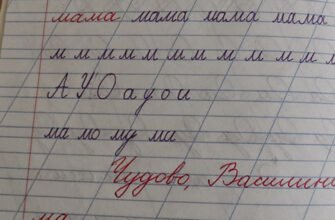 мама мама мама мама
м м м м м м м м м м м м
А У О а у о и
ма мо му ми
Чудово, Василина
ма